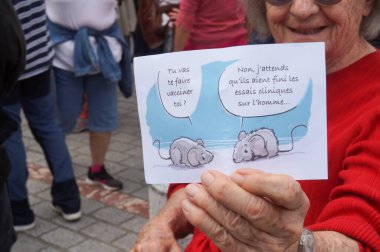 Tu vas
te faire
vacciner
toi ?
Non, j'attends
qu'ils aient fini les
essais cliniques
sur l'homme...